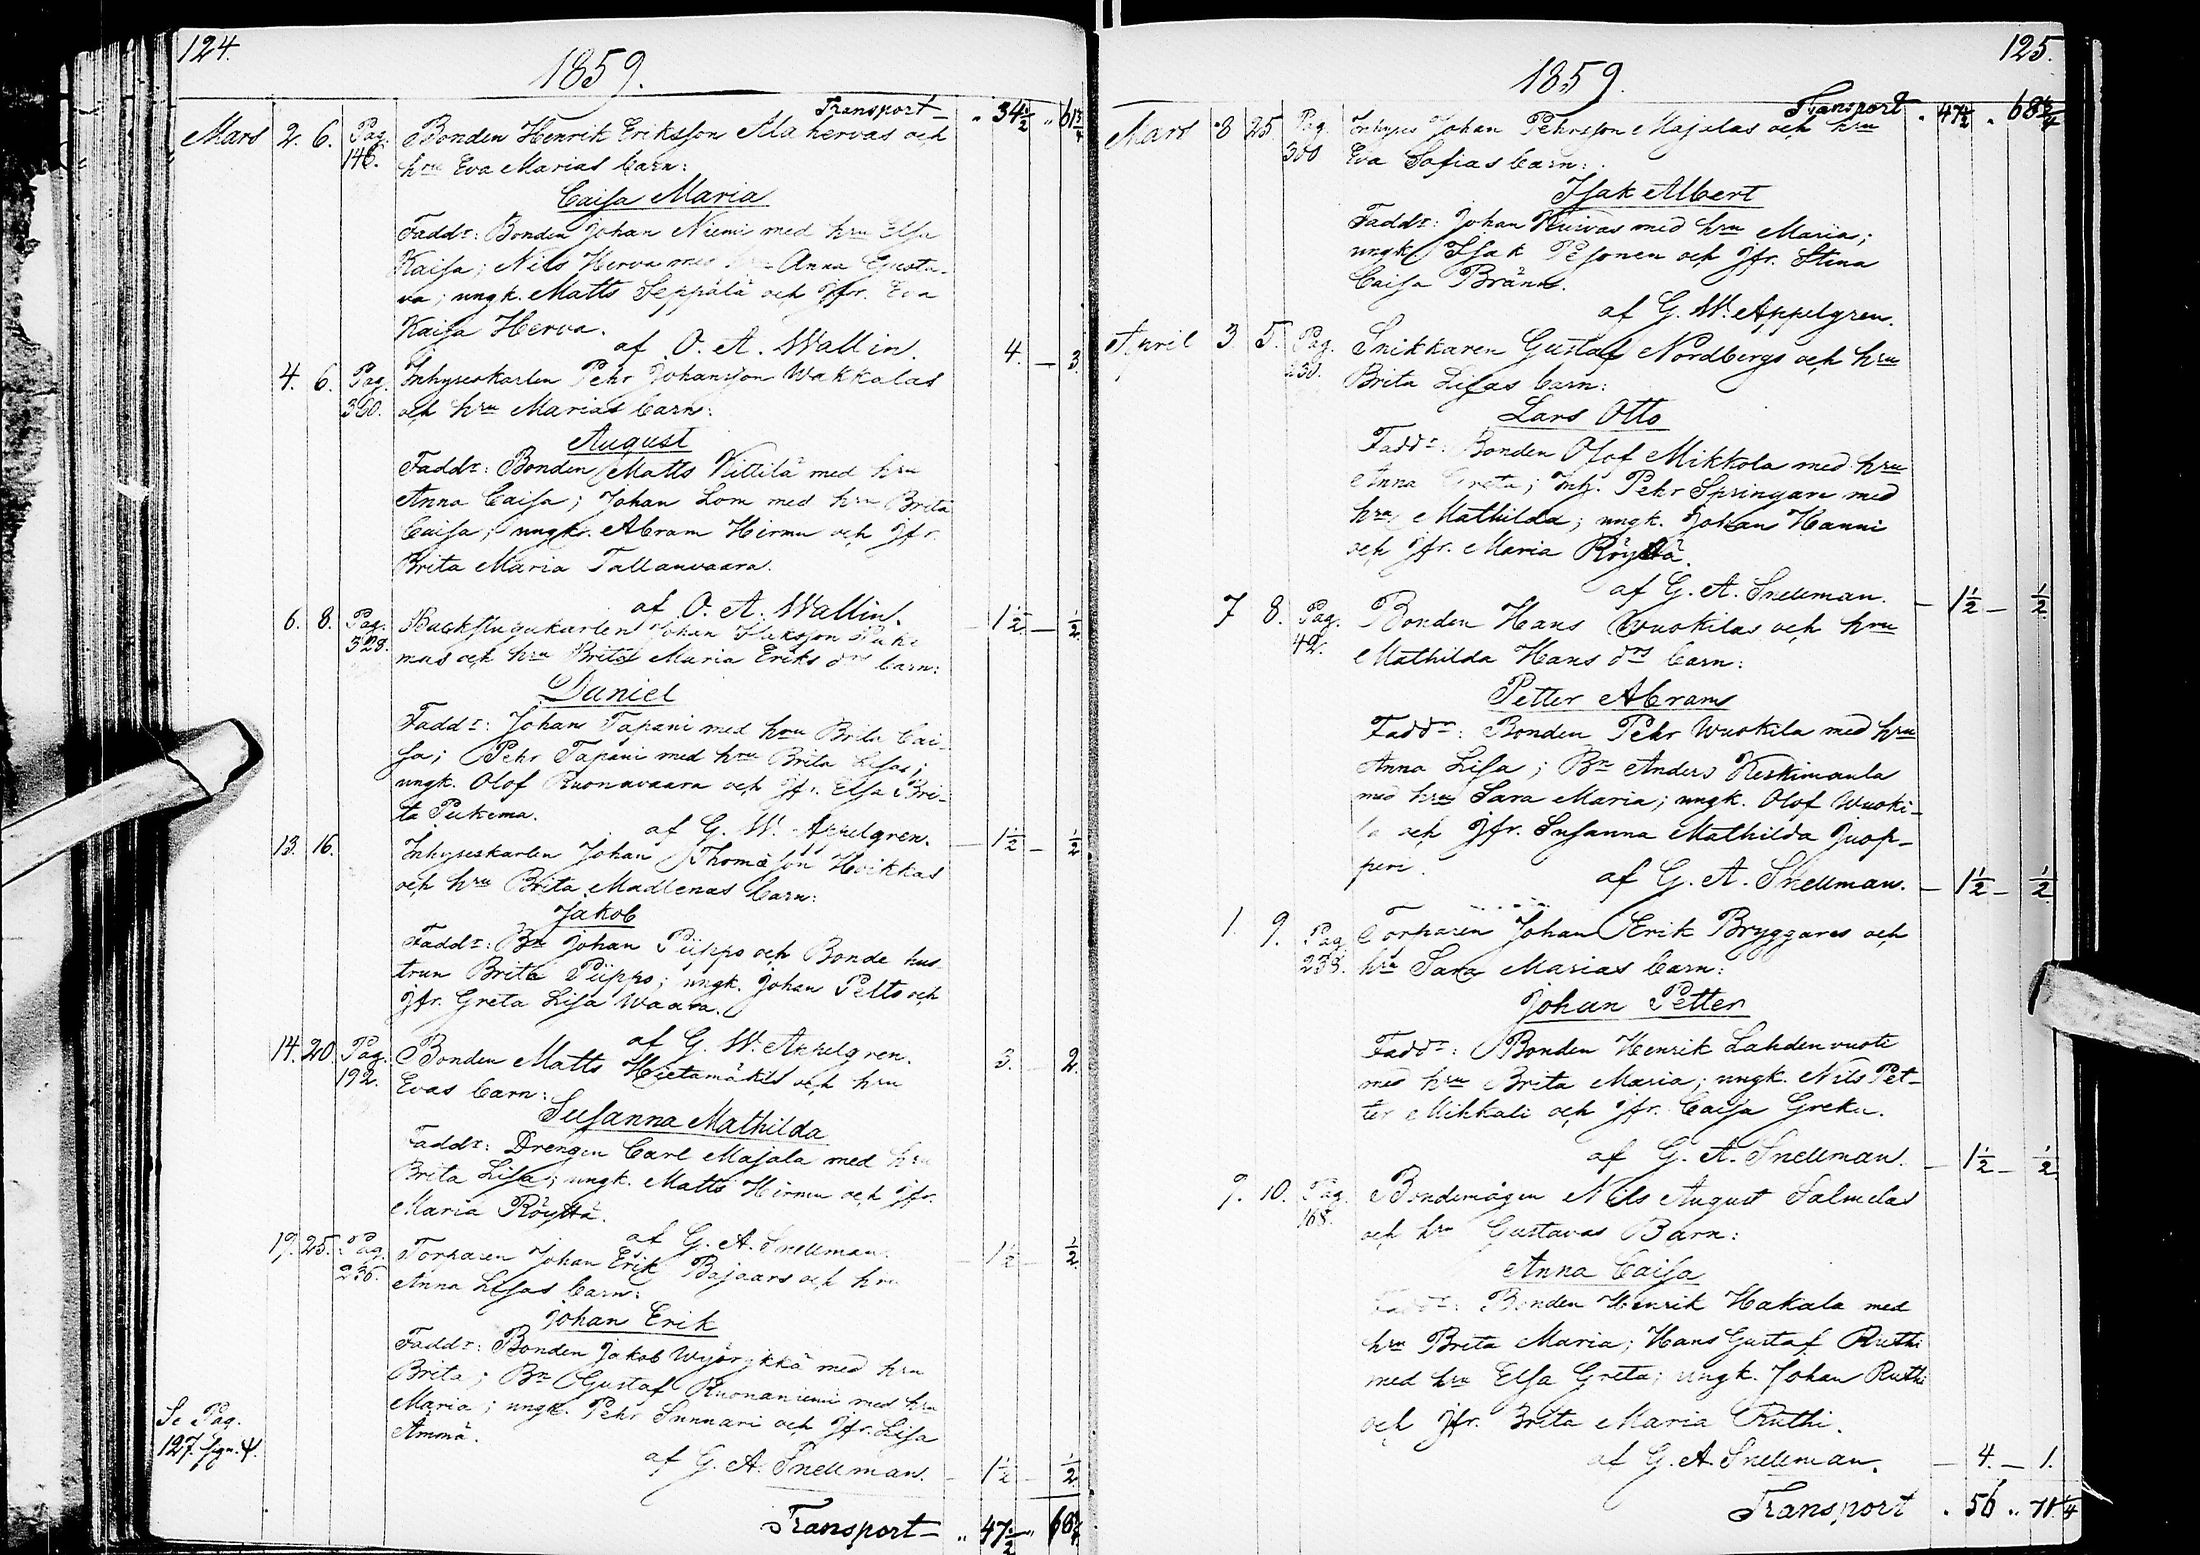 124.
1859.
Transport — " 34½ " 61¾
Mars 2. 6. Pag. 146. Bonden Henrik Eriksson Alahervas och
hru Eva Marias barn:
Caisa Maria
Faddr: Bonden Johan Niemi med hru Elsa
Kaisa; Nils Herva med hru Anna Gusta-
va; ungk. Matts Seppälä och Jfr. Eva
Kaisa Herva.
af O. A. Wallin. 4. — 3.
4. 6. Pag. 360. Inhyseskarlen Pehr Johansson Wakkalas
och hru Marias barn:
August
Faddr: Bonden Matts Kittilä med hru
Anna Caisa; Johan Lom med hru Brita
Caisa; ungk. Abram Hirmu och Jfr.
Brita Maria Tallanvaara.
af O. A. Wallin. — 1½ — ½
6. 8. Pag. 329. Backstugukarlen Johan Isaksson
mas och hru Brita Maria Eriks drs barn:
Daniel
Faddr: Johan Tapani med hru Brita Cai-
sa; Pehr Tapani med hru Brita Lisa;
ungk. Olof Ruonavaara och Jfr. Elsa Bri-
ta Pukema.
af G. W. Appelgren. — 1½ — ½
13. 16. Inhyseskarlen Johan Thomasson Hvikkas
och hru Brita Madlenas barn:
Jakob
Faddr: Bn Johan Piippo och Bonde hus-
trun Brita Piippo; ungk. Johan Pelto och
Jfr. Greta Lisa Waara.
af G. W. Appelgren. 3. 2.
14. 20. Pag. 192. Bonden Matts Hietamäkis och hru
Evas barn:
Susanna Mathilda
Faddr: Drengen Carl Majala med hru
Brita Lisa; ungk. Matts Hirmu och Jfr.
Maria Röyttä.
af G. A. Snellman. — 1½ — ½
19. 25. Pag. 236. Torparen Johan Erik Bajaars och hru
Anna Lisas barn:
Johan Erik
Faddr: Bonden Jakob Wyörykkä med hru
Brita; Bn Gustaf Ruonaniemi med hru
Maria; ungk. Pehr Sunnari och Jfr. Lisa
Ämmä.
Se Pag.
127. sign. Ψ.
af G. A. Snellman. — 1½ — ½
Transport — " 47½ "
125.
1859.
Transport " 47½ " 68¾
Mars 8 25 Pag. 300 Inhyses Johan Pehrsson Majalas och hru
Eva Sofias barn:
Isak Albert
Faddr: Johan Kuivas med hru Maria;
ungk. Isak Pesonen och Jfr. Stina
Caisa Bränn.
af G. W. Appelgren.
April 3 5. Pag. Snikkaren Gustaf Nordbergs och hru
Brita Lisas barn:
Lars Otto
Faddr: Bonden Olof Mikkola med hru
Anna Greta; Inh. Pehr Springare med
hru Mathilda; ungk. Johan Hanni
och Jfr. Maria Röyttä.
af G. A. Snellman. — 1½ — ½
7 8. Pag. 42. Bonden Hans Wuokilas och hru
Mathilda Hans drs barn:
Petter Abram
Faddr: Bonden Pehr Wuokila med hru
Anna Lisa; Bn Anders Keskimaula
med hru Sara Maria; ungk. Olof Wuoki-
la och Jfr. Susanna Mathilda Juop-
peri.
af G. A. Snellman. — 1½ — ½
1. 9. Pag. 238. Torparen Johan Erik Bryggares och
hru Sara Marias barn:
Johan Petter
Faddr: Bonden Henrik Lahdenvuoti
med hru Brita Maria; ungk. Nils Pet-
ter Mikkali och Jfr. Caisa Greku.
af G. A. Snellman. — 1½ — ½
9. 10. Pag. 168. Bondemågen Nils August Salmelas
och hru Gustavas Barn:
Anna Caisa
Faddr: Bonden Henrik Hakala med
hru Brita Maria; Hans Gustaf Ruthi
med hru Elsa Greta; ungk. Johan Ruthi
och Jfr. Brita Maria Ruthi.
af G. A. Snellman. — 4. — 1.
Transport " 56 " 71¼